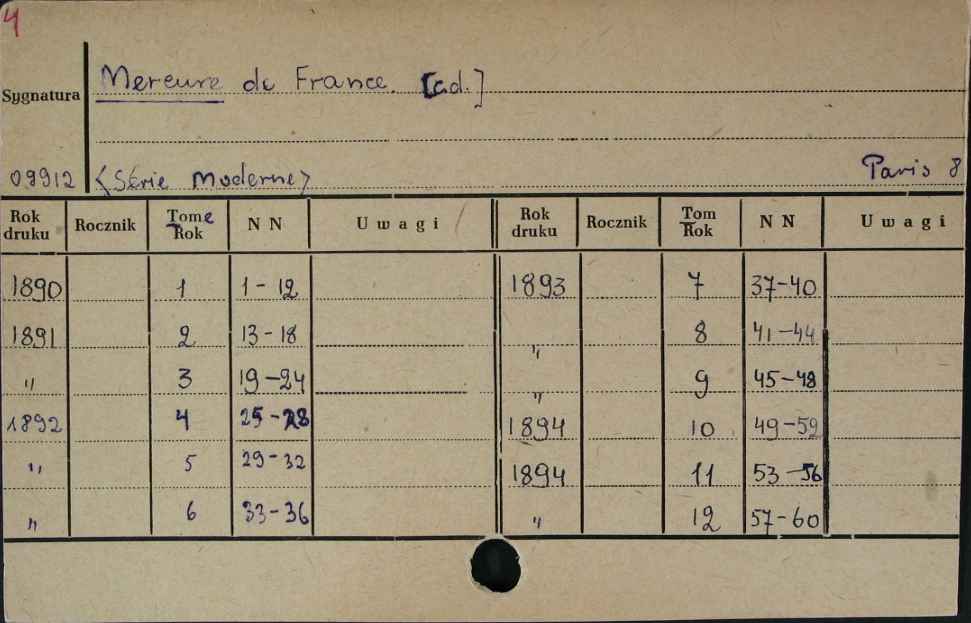 4
Sygnatura Mercure de France. [cd.]
09912 <Série Moderne> Paris 8
Rok druku Rocznik Tome Rok N N Uwagi Rok druku Rocznik Tom Rok N N Uwagi
1890 1 1-12 1893 7 37-40
1891 2 13-18 " 8 41-44
" 3 19-24 " 9 45-48
1892 4 25-28 1894 10 49-52
" 5 29-32 1894 11 53-56
" 6 33-36 " 12 57-60